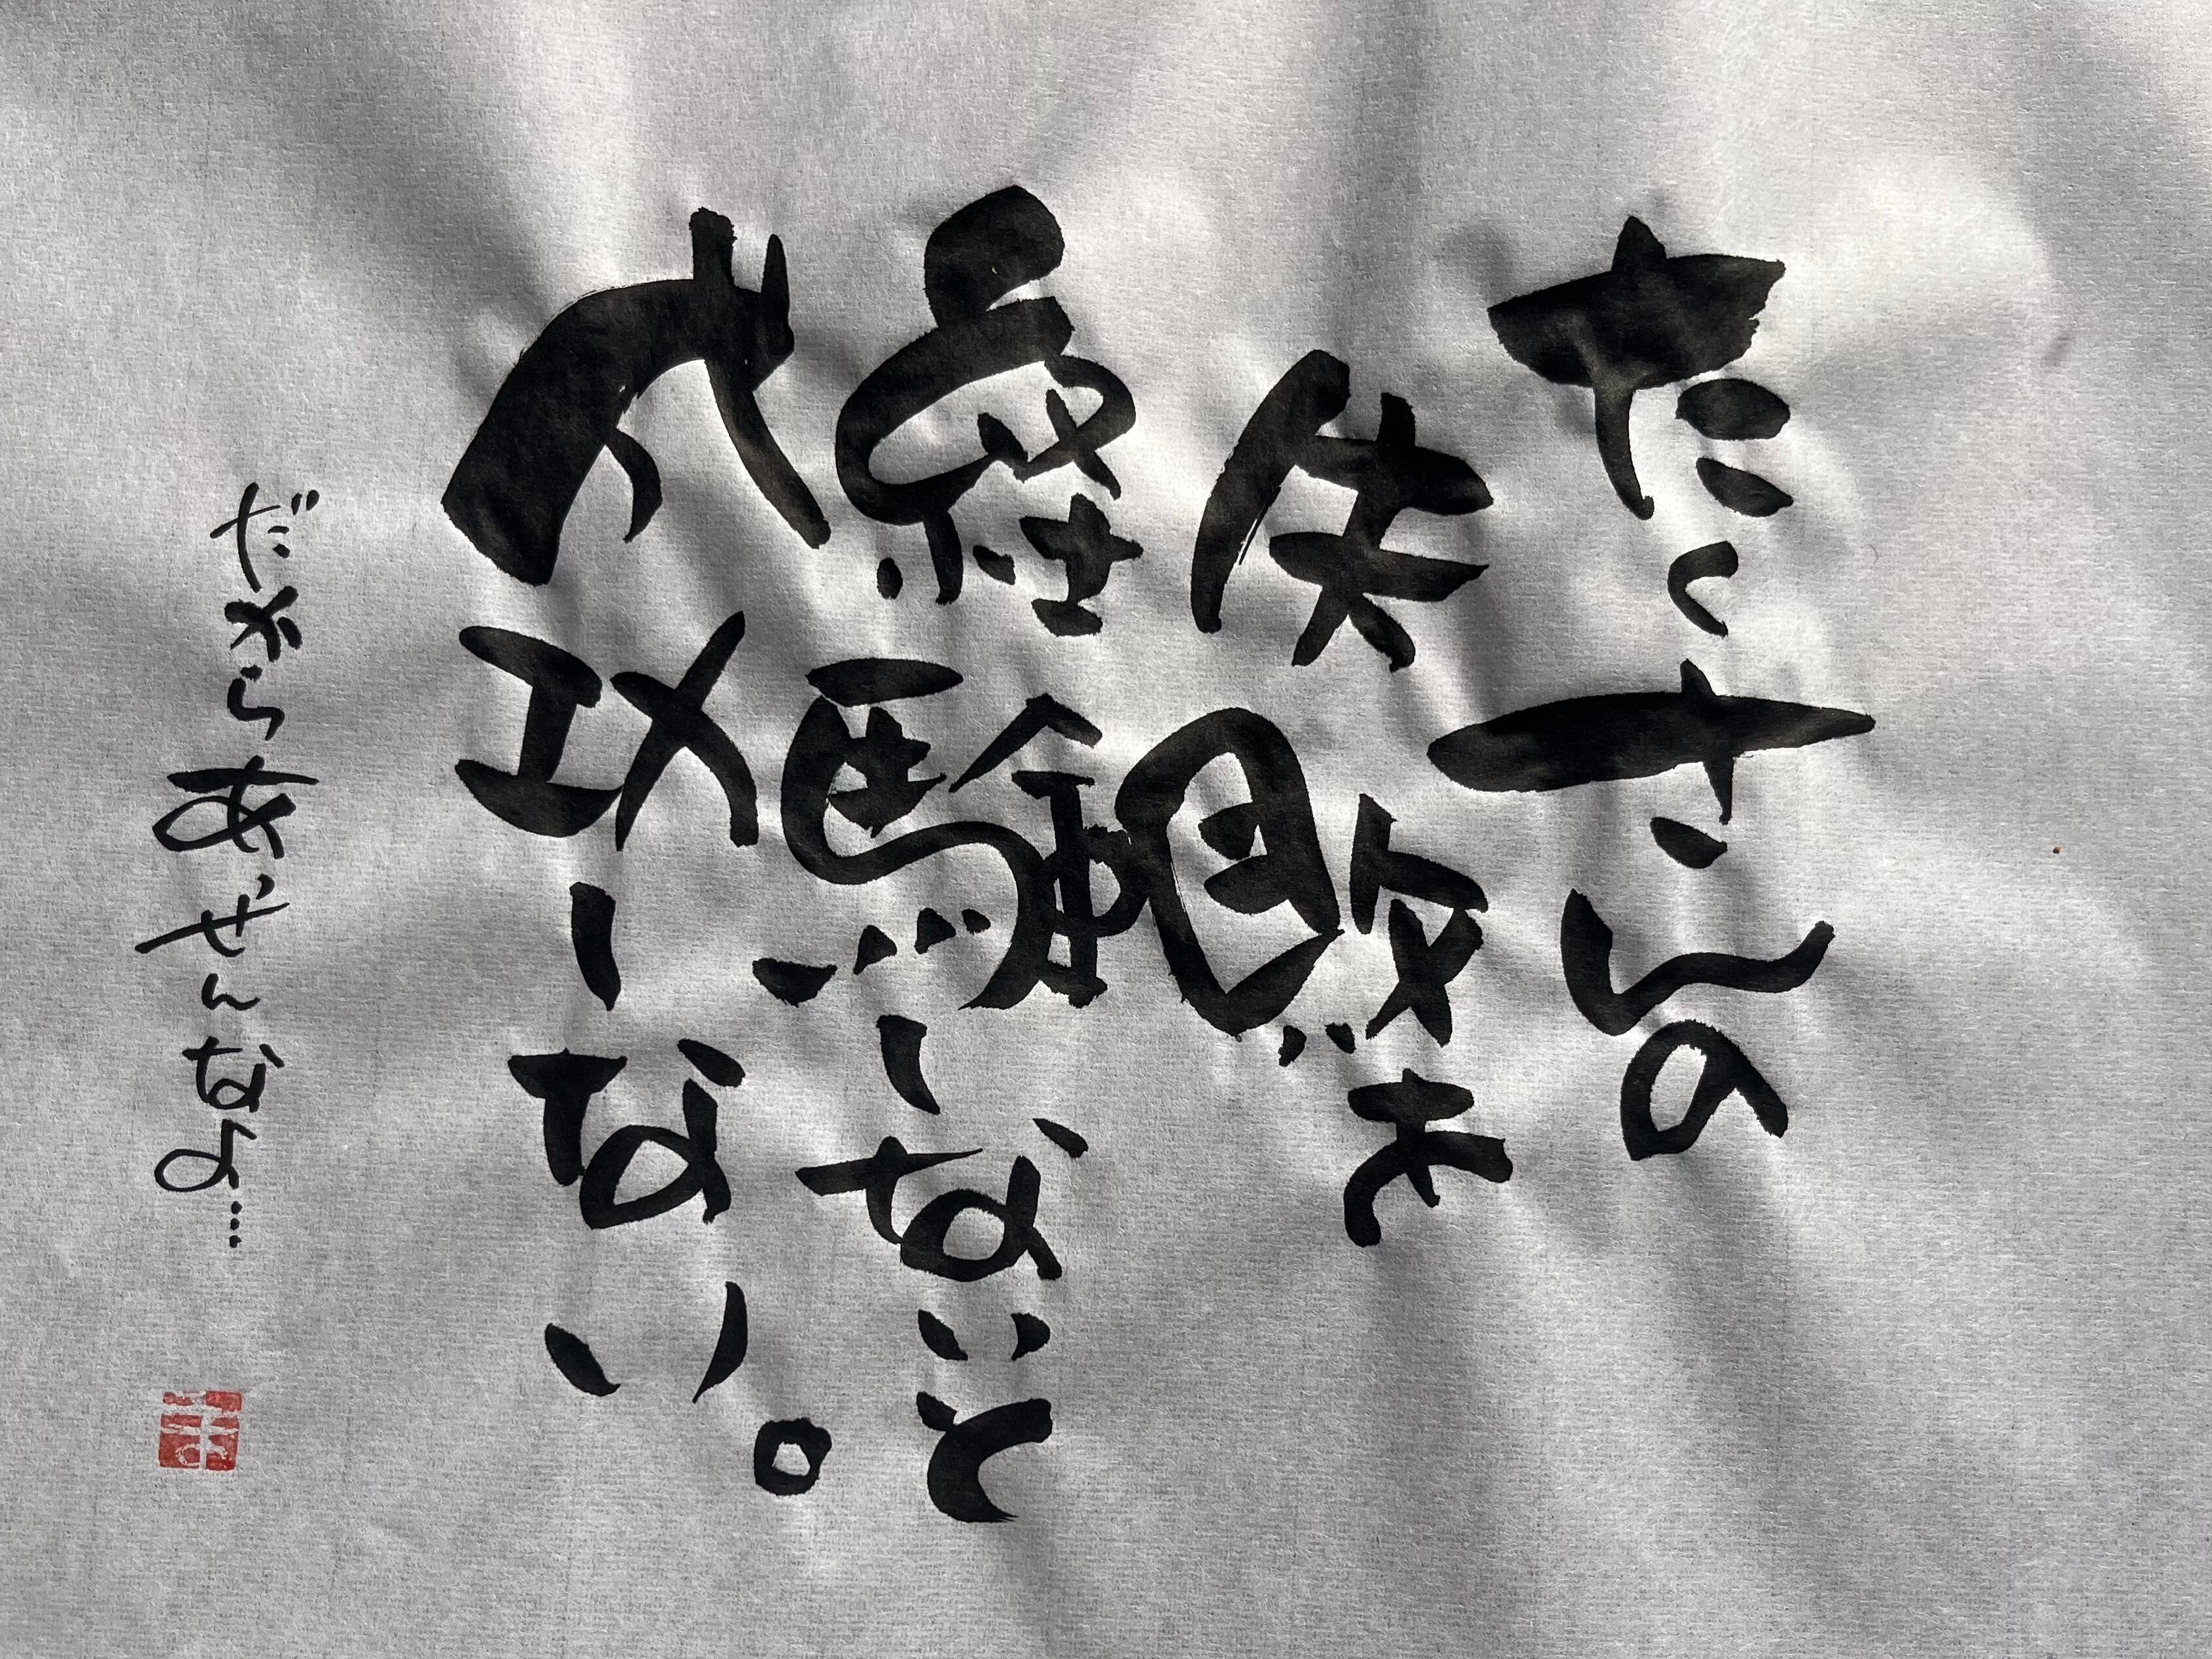 たくさんの
失敗を
経験しないと
成功しない。
だからあせんなよ…